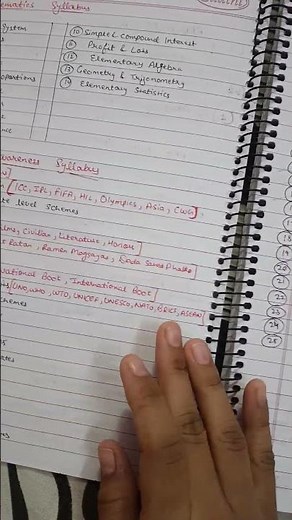 ematics Syllabus
System
⑩ Simple & compound Interest
⑪ Profit & Loss
⑫ Elementary Algebra
⑬ Geometry & Trigonometry
oportions
⑭ Elementary Statistics
wareness Syllabus
[ICC, IPL, FIFA, HIL, Olympics, Asia, CWG]
te level schemes
Civilian, Literature, Honours
Ratan, Ramon Magsaysay, Dada Saheb Phalke
National Book, International Book
[UNO, WHO, WTO, UNICEF, UNESCO, NATO, BRICS, ASEAN]
chemes
ates
18
19
20
21
22
23
24
25